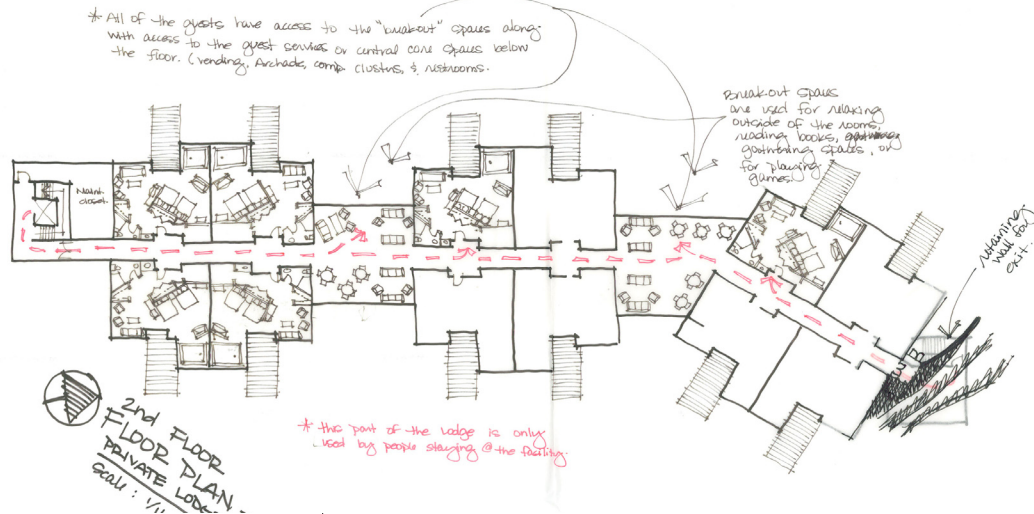 * All of the guests have access to the "breakout" spaces along
with access to the guest services or central core spaces below
the floor. (vending, Archade, comp. clusters, & restrooms.
Breakout spaces
are used for relaxing
outside of the rooms,
reading books,
gathering spaces, or
for playing
games.
Maint.
closet.
retaining
wall for
exit.
* this part of the lodge is only
used by people staying @ the facility.
2nd FLOOR
FLOOR PLAN
PRIVATE
Scale :